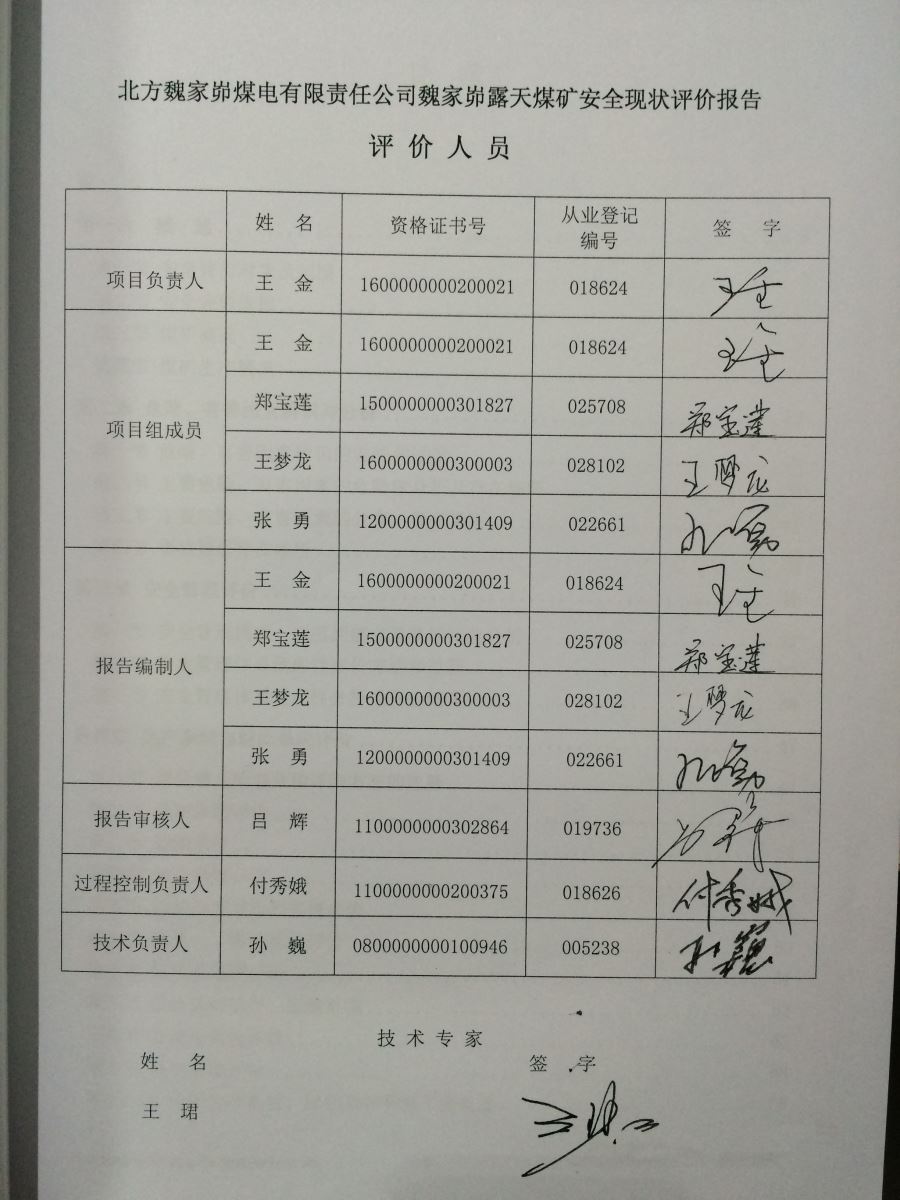 北方魏家峁煤电有限责任公司魏家峁露天煤矿安全现状评价报告
评价人员
姓 名 资格证书号 从业登记编号 签 字
项目负责人 王 金 1600000000200021 018624 王金
项目组成员 王 金 1600000000200021 018624 王金
郑宝莲 1500000000301827 025708 郑宝莲
王梦龙 1600000000300003 028102 王梦龙
张 勇 1200000000301409 022661 张勇
报告编制人 王 金 1600000000200021 018624 王金
郑宝莲 1500000000301827 025708 郑宝莲
王梦龙 1600000000300003 028102 王梦龙
张 勇 1200000000301409 022661 张勇
报告审核人 吕 辉 1100000000302864 019736 吕辉
过程控制负责人 付秀娥 1100000000200375 018626 付秀娥
技术负责人 孙 巍 0800000000100946 005238 孙巍
技术专家
姓 名 签 字
王 珺